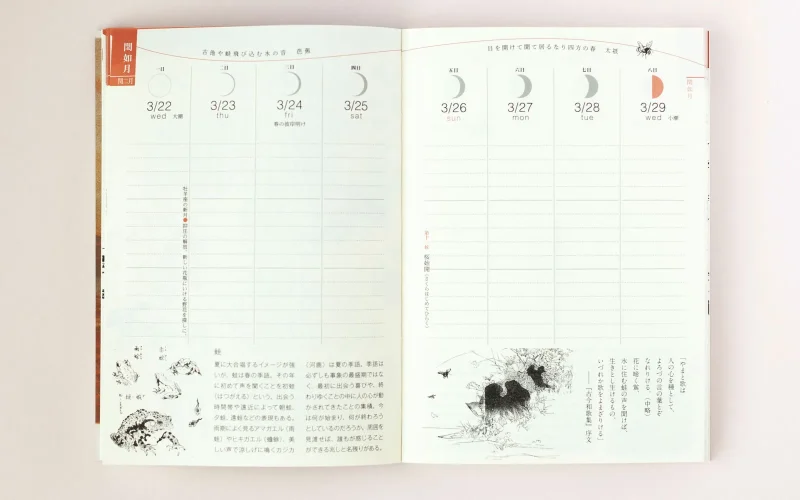 閏如月
閏二月
古池や蛙飛び込む水の音 芭蕉
一日
3/22
wed 大潮
二日
3/23
thu
三日
3/24
fri
春の彼岸明け
四日
3/25
sat
鮭
夏に大合唱するイメージが強
いが、蛙は春の季語。その年
に初めて声を聞くことを初蛙
（はつがえる）という。出会う
時間帯や遠近によって朝蛙、
夕蛙、遠蛙などの表現もある。
田畑によく見るアマガエル（雨
蛙）やヒキガエル（蟇蛙）、美
しい声で涼しげに鳴くカジカ
（河鹿）は夏の季語。季語は
必ずしも事象の最盛期ではな
く、最初に出会う喜びや、終
わりゆくことの中に人の心が動
かされてきたことの集積。今
は何が始まり、何が終わろう
としているのだろうか。周囲を
見渡せば、誰もが感じること
ができる兆しと名残りがある。
目を開けて聞て居るなり四方の春 太祇
五日
3/26
sun
六日
3/27
mon
七日
3/28
tue
八日
3/29
wed 小潮
閏如月
桜始開（さくらはじめてひらく）
「やまと歌は
人の心を種として、
よろづの言の葉とぞ
なれりける。（中略）
花に鳴く鶯、
水に住む蛙の声を聞けば、
生きとし生けるもの、
いづれか歌をよまざりける」
『古今和歌集』序文